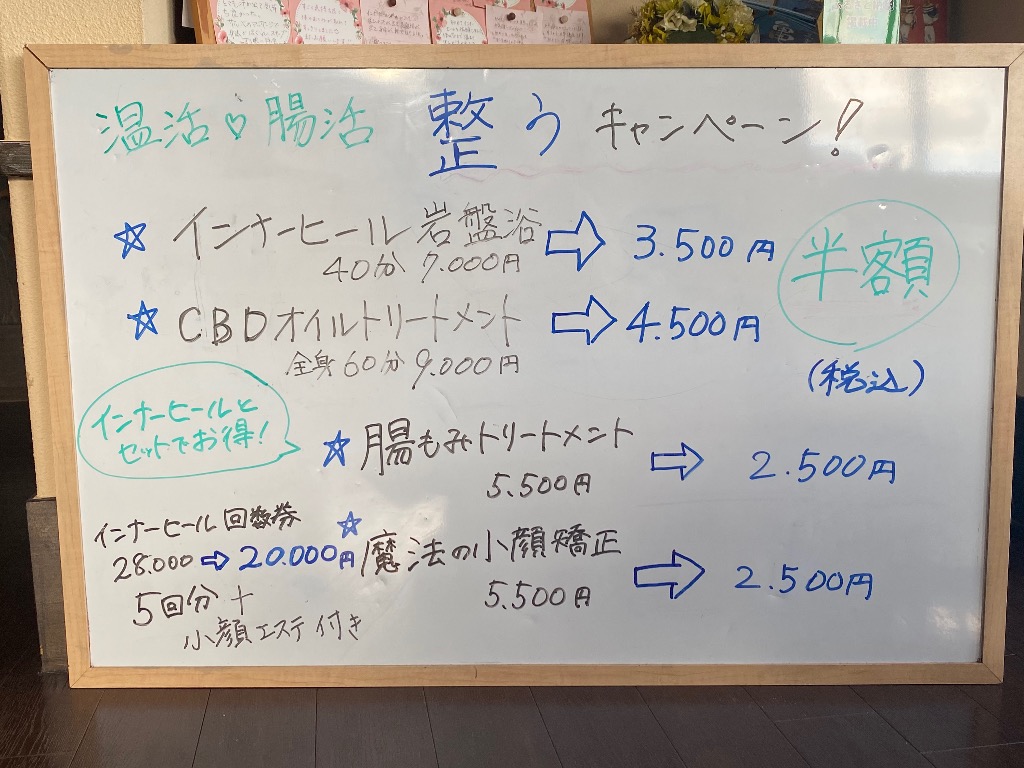 温活♡腸活 整う キャンペーン!
☆ インナーヒール 岩盤浴 ⇨ 3.500円
40分 7.000円
半額
☆ CBDオイルトリートメント ⇨ 4.500円
全身60分 9.000円
(税込)
インナーヒールと
セットでお得!
☆ 腸もみトリートメント ⇨ 2.500円
5.500円
インナーヒール 回数券
28.000 ⇨ 20.000円
5回分 +
小顔エステ付き
☆ 魔法の小顔矯正 ⇨ 2.500円
5.500円